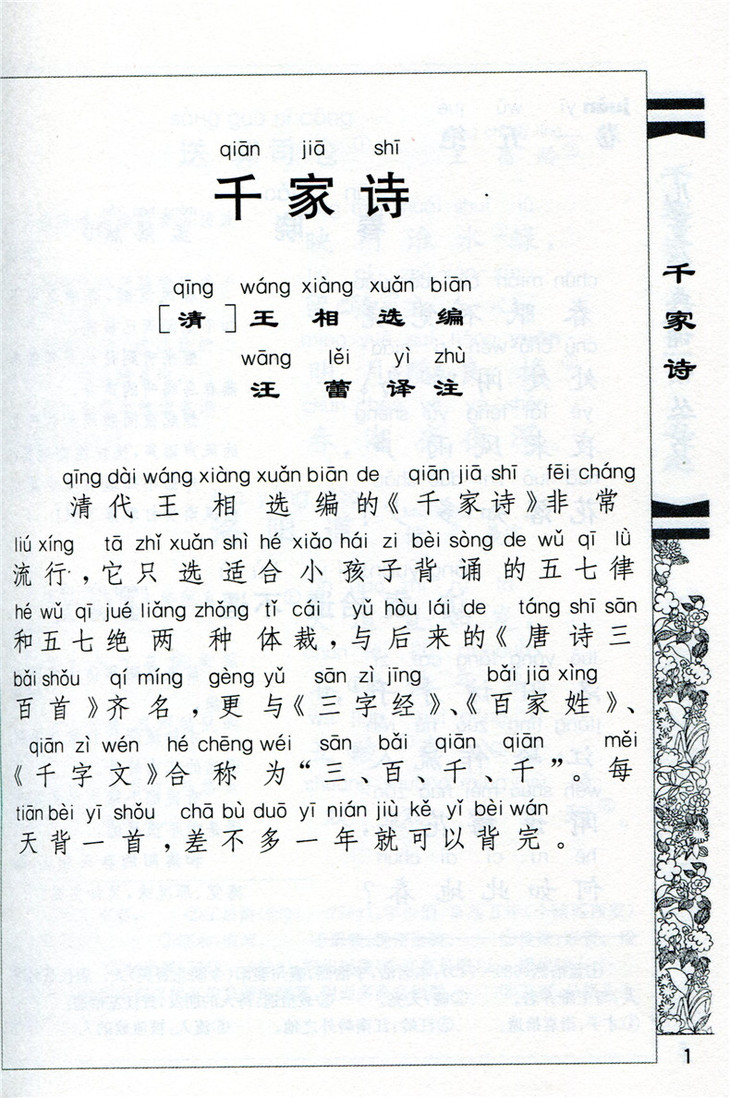 qiān jiā shī
千家诗
qīng wáng xiàng xuǎn biān
［清］王相选编
wāng lěi yì zhù
汪蕾译注
qīng dài wáng xiàng xuǎn biān de qiān jiā shī fēi cháng
清代王相选编的《千家诗》非常
liú xíng tā zhǐ xuǎn shì hé xiǎo hái zi bèi sòng de wǔ qī lǜ
流行，它只选适合小孩子背诵的五七律
hé wǔ qī jué liǎng zhǒng tǐ cái yǔ hòu lái de táng shī sān
和五七绝两种体裁，与后来的《唐诗三
bǎi shǒu qí míng gèng yǔ sān zì jīng bǎi jiā xìng
百首》齐名，更与《三字经》、《百家姓》、
qiān zì wén hé chēng wéi sān bǎi qiān qiān měi
《千字文》合称为“三、百、千、千”。每
tiān bèi yī shǒu chā bù duō yī nián jiù kě yǐ bèi wán
天背一首，差不多一年就可以背完。
千家诗
1